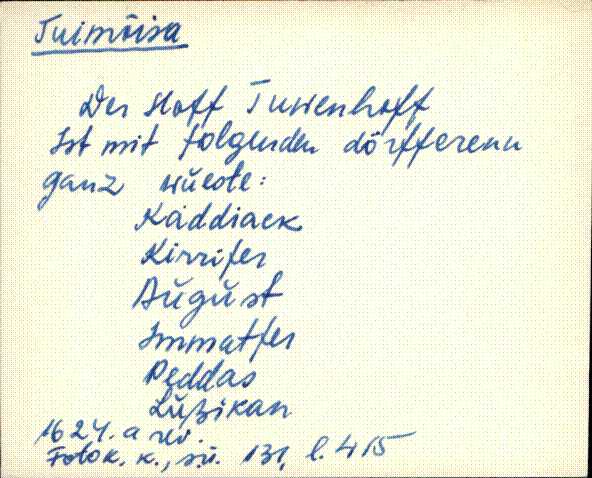 Tuimõisa
Der Hoff Tuwenhoff
Ist mit folgenden dörfferenn
ganz wüste:
Kaddiack
Kirrifer
Aŭgŭst
Immatfer
Peddas
Lŭßikan
1624. a rev.
Fotok. k., s.ü. 131, l. 415